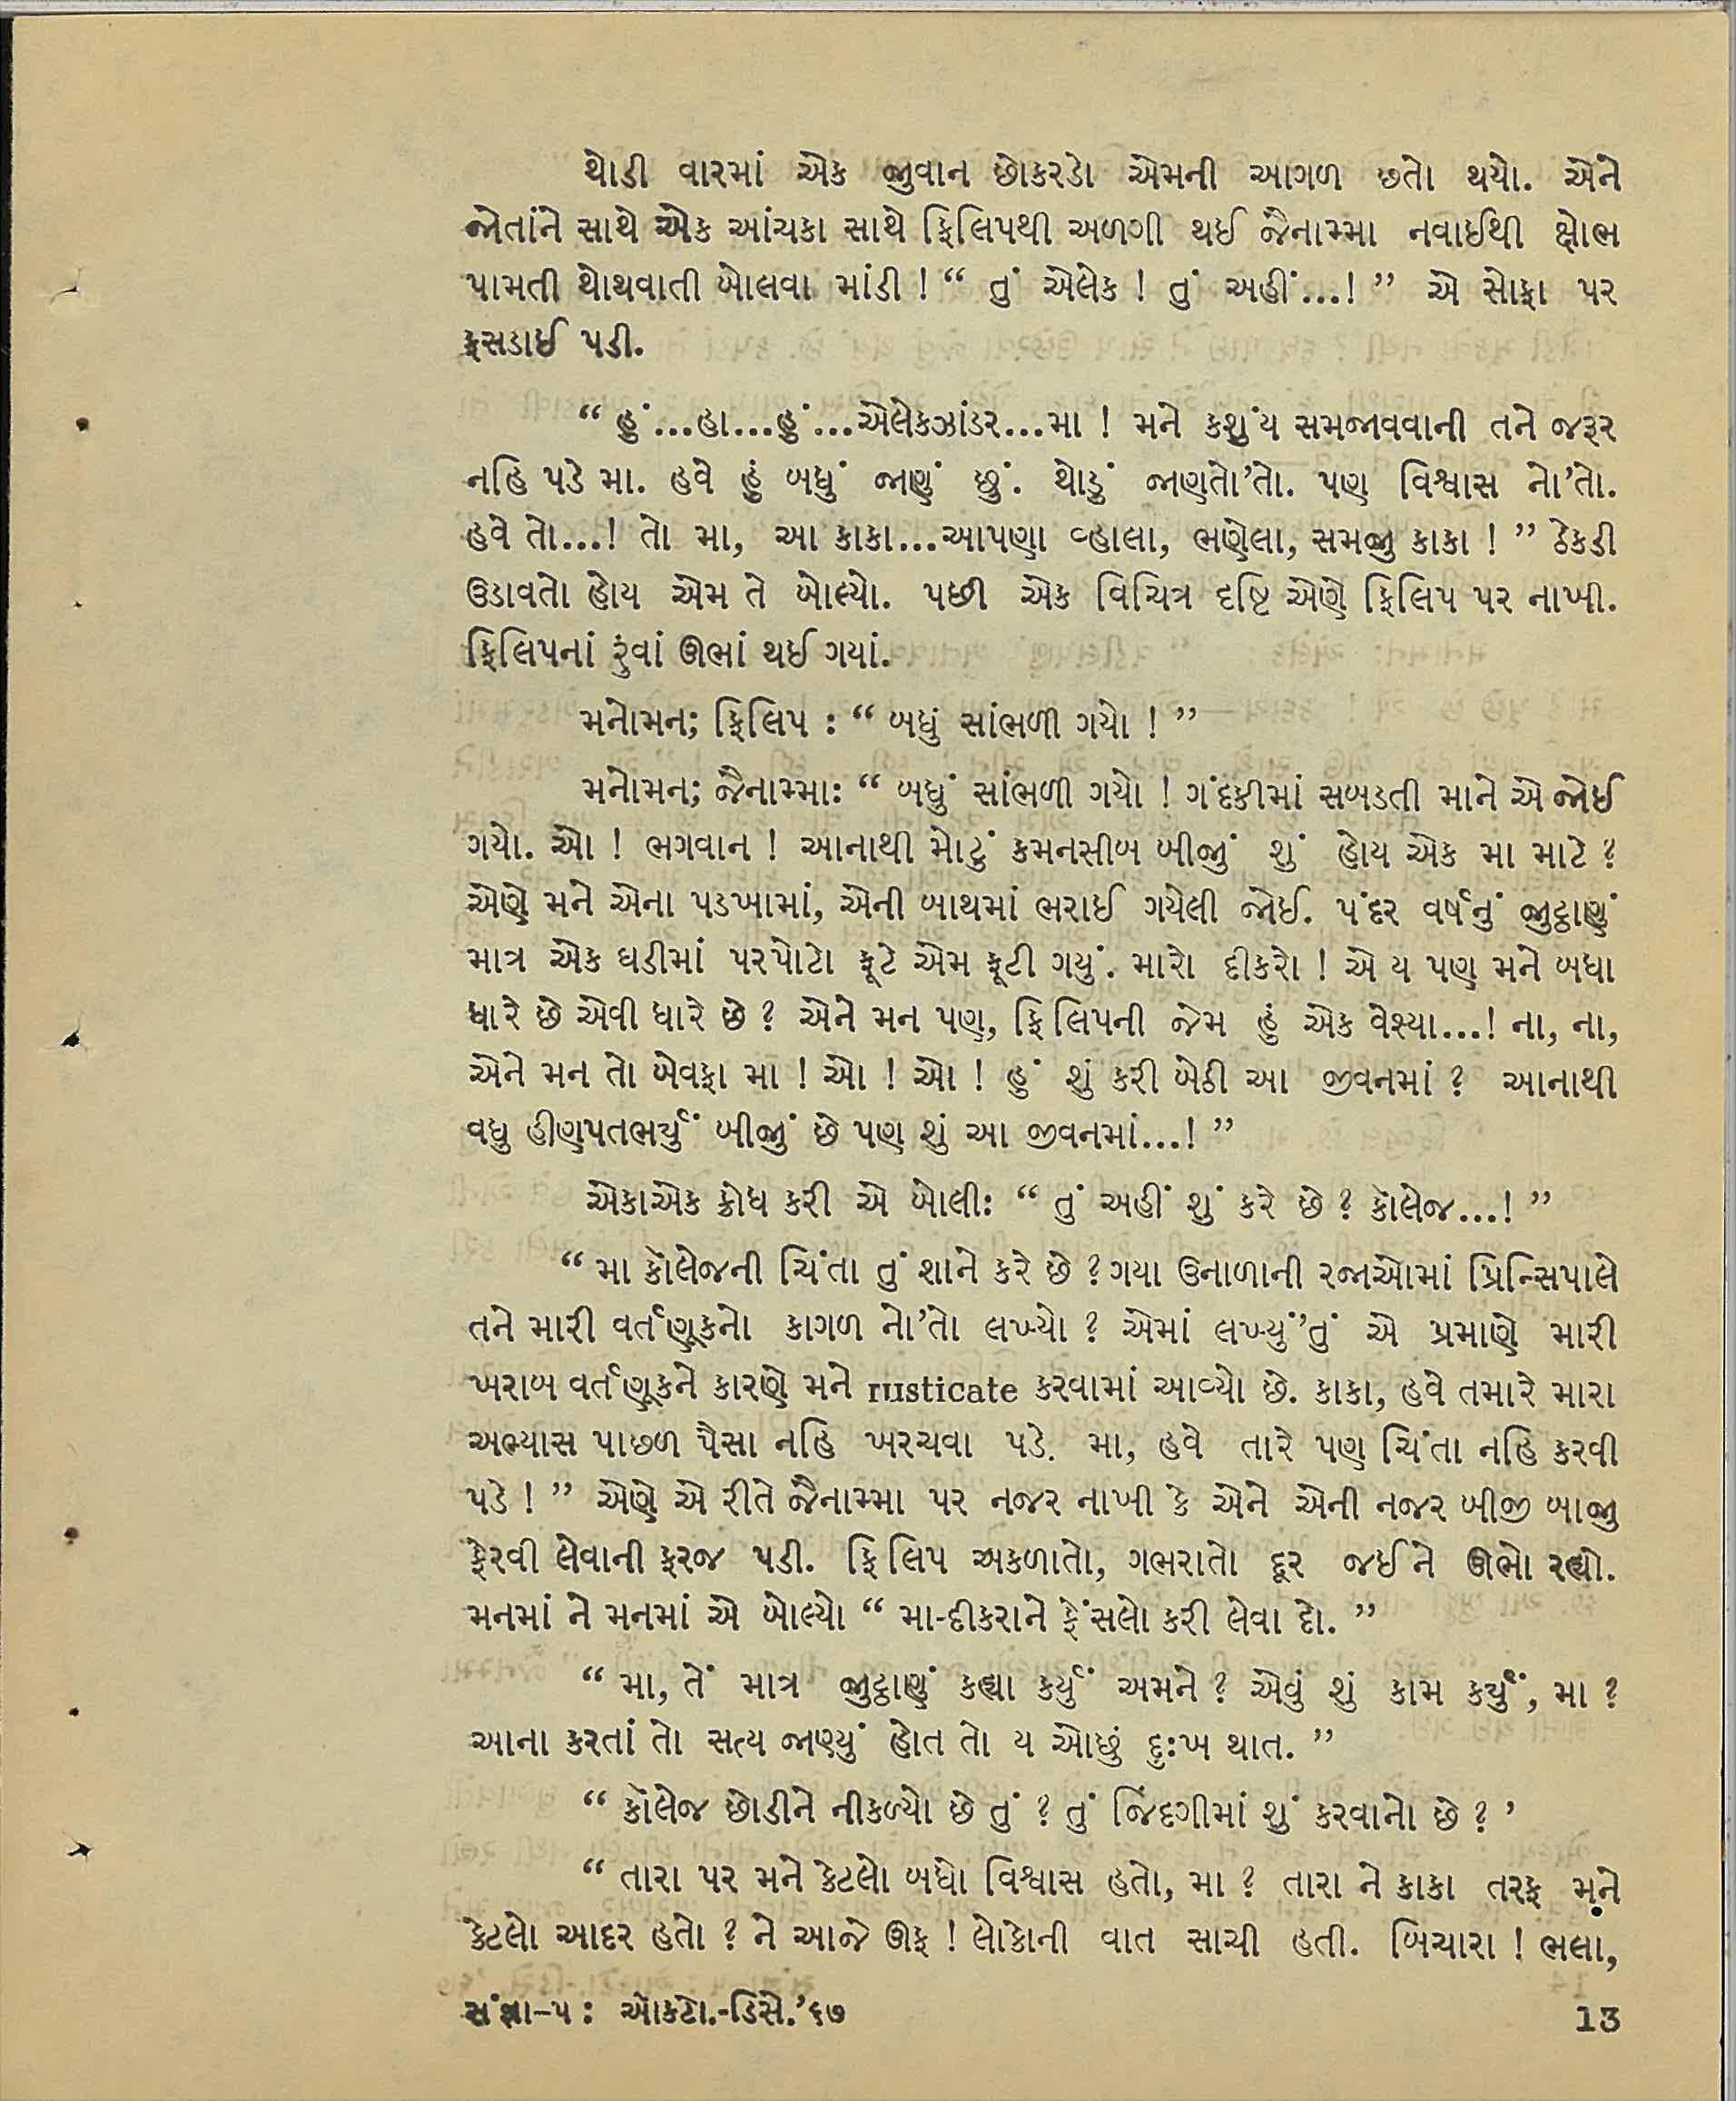 થોડી વારમાં એક જુવાન છોકરડો એમની આગળ છતો થયો. એને
જોતાંને સાથે એક આંચકા સાથે ફિલિપથી અળગી થઈ જૈનામ્મા નવાઈથી ક્ષોભ
પામતી થોથવાતી બોલવા માંડી ! “ તું એલેક ! તું અહીં...! ” એ સોફા પર
ફસડાઈ પડી.
“ હું ...હા...હું ...એલેકઝાંડર...મા ! મને કશુંય સમજાવવાની તને જરૂર
નહિ પડે મા. હવે હું બધું જાણું છું. થોડું જાણતો’તો. પણ વિશ્વાસ નો’તો.
હવે તો...! તો મા, આ કાકા...આપણા વ્હાલા, ભણેલા, સમજુ કાકા ! ” ઠેકડી
ઉડાવતો હોય એમ તે બોલ્યો. પછી એક વિચિત્ર દૃષ્ટિ એણે ફિલિપ પર નાખી.
ફિલિપનાં રુંવાં ઊભાં થઈ ગયાં.
મનોમન; ફિલિપ : “ બધું સાંભળી ગયો ! ”
મનોમન; જૈનામ્મા: “ બધું સાંભળી ગયો ! ગંદકીમાં સબડતી માને એ જોઈ
ગયો. ઓ ! ભગવાન ! આનાથી મોટું કમનસીબ બીજું શું હોય એક મા માટે ?
એણે મને એના પડખામાં, એની બાથમાં ભરાઈ ગયેલી જોઈ. પંદર વર્ષનું જુઠ્ઠાણું
માત્ર એક ઘડીમાં પરપોટો ફૂટે એમ ફૂટી ગયું. મારો દીકરો ! એ ય પણ મને બધા
ધારે છે એવી ધારે છે ? એને મન પણ, ફિલિપની જેમ હું એક વેશ્યા...! ના, ના,
એને મન તો બેવફા મા ! ઓ ! ઓ ! હું શું કરી બેઠી આ જીવનમાં ? આનાથી
વધુ હીણપતભર્યું બીજું છે પણ શું આ જીવનમાં...! ”
એકાએક ક્રોધ કરી એ બોલી: “ તું અહીં શું કરે છે ? કૉલેજ...! ”
“ મા કૉલેજની ચિંતા તું શાને કરે છે ? ગયા ઉનાળાની રજાઓમાં પ્રિન્સિપાલે
તને મારી વર્તણૂકનો કાગળ નો’તો લખ્યો ? એમાં લખ્યું’તું એ પ્રમાણે મારી
ખરાબ વર્તણૂકને કારણે મને rusticate કરવામાં આવ્યો છે. કાકા, હવે તમારે મારા
અભ્યાસ પાછળ પૈસા નહિ ખરચવા પડે. મા, હવે તારે પણ ચિંતા નહિ કરવી
પડે ! ” એણે એ રીતે જૈનામ્મા પર નજર નાખી કે એને એની નજર બીજી બાજુ
ફેરવી લેવાની ફરજ પડી. ફિલિપ અકળાતો, ગભરાતો દૂર જઈને ઊભો રહ્યો.
મનમાં ને મનમાં એ બોલ્યો “ મા-દીકરાને ફેંસલો કરી લેવા દો. ”
“ મા, તેં માત્ર જુઠ્ઠાણું કહ્યા કર્યું અમને ? એવું શું કામ કર્યું, મા ?
આના કરતાં તો સત્ય જાણ્યું હોત તો ય ઓછું દુઃખ થાત. ”
“ કૉલેજ છોડીને નીકળ્યો છે તું ? તું જિંદગીમાં શું કરવાનો છે ? ’
“ તારા પર મને કેટલો બધો વિશ્વાસ હતો, મા ? તારા ને કાકા તરફ મને
કેટલો આદર હતો ? ને આજે ઊફ ! લોકોની વાત સાચી હતી. બિચારા ! ભલા,
સંજ્ઞા–૫ : ઑક્ટો.-ડિસે.’૬૭ 13